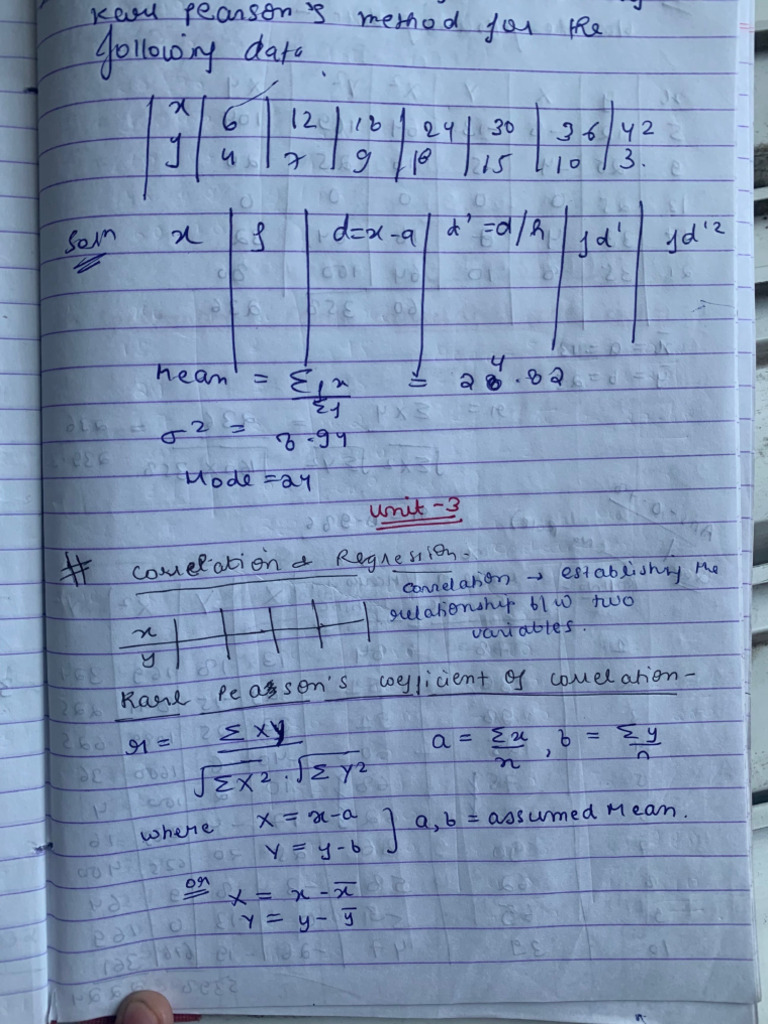 Karl Pearson's method for the
following data
x | 6 | 12 | 18 | 24 | 30 | 36 | 42
y | 4 | 7 | 9 | 18 | 15 | 10 | 3.
Soln x | f | d=x-a | d' = d/h | fd' | fd'2
Mean = Σfx/Σf = 24.82
σ2 = 3.94
Mode = 24
Unit-3
# Correlation & Regression-
correlation → establishing the
x relationship b/w two
y variables.
Karl Pearson's coefficient of correlation-
r = ΣXY / √ΣX2 . √ΣY2 a = Σx/n , b = Σy/n
where X = x-a ] a, b = assumed Mean.
Y = y-b
or X = x - x̄
Y = y - ȳ